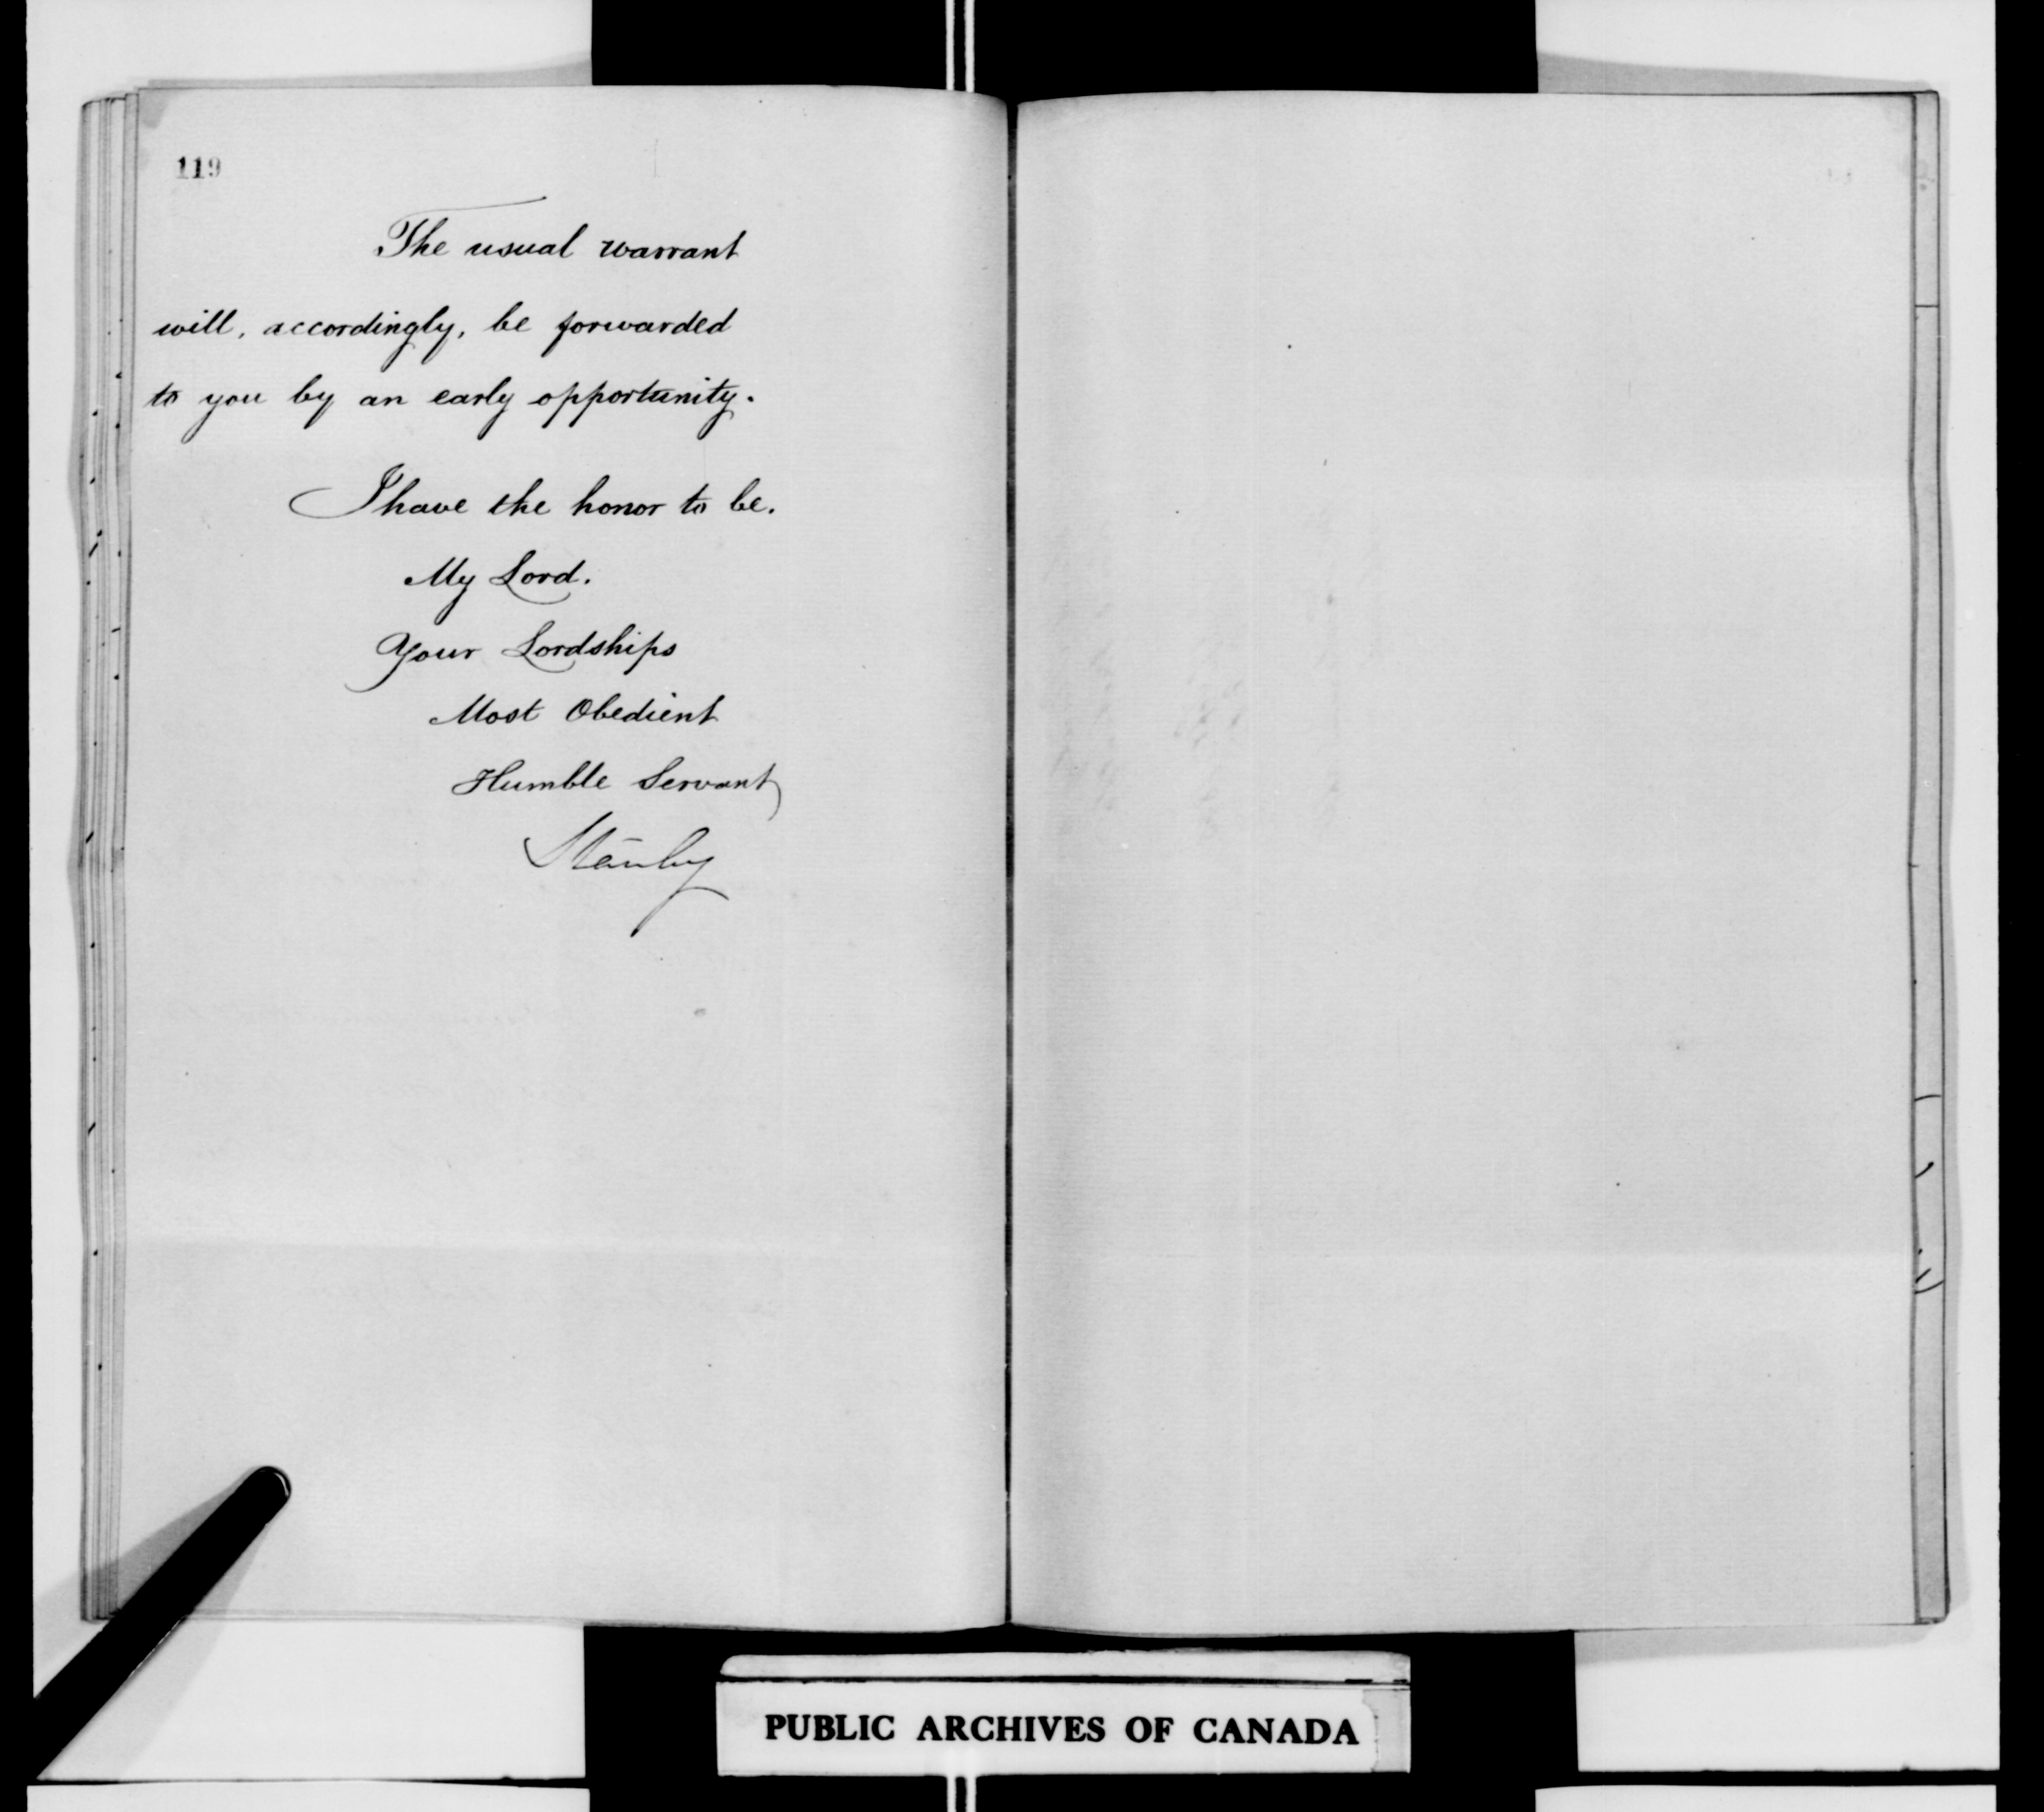 119
The usual warrant
will, accordingly, be forwarded
to you by an early opportunity.
I have the honor to be.
My Lord.
Your Lordships
Most Obedient
Humble Servant
Stanley
PUBLIC ARCHIVES OF CANADA